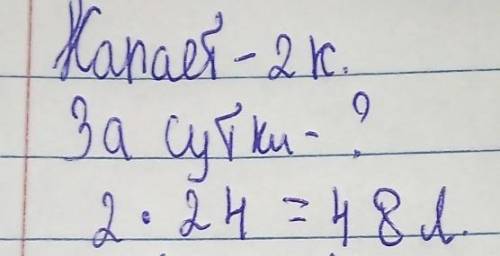 Капает - 2 к.
За сутки - ?
2 · 24 = 48 л.